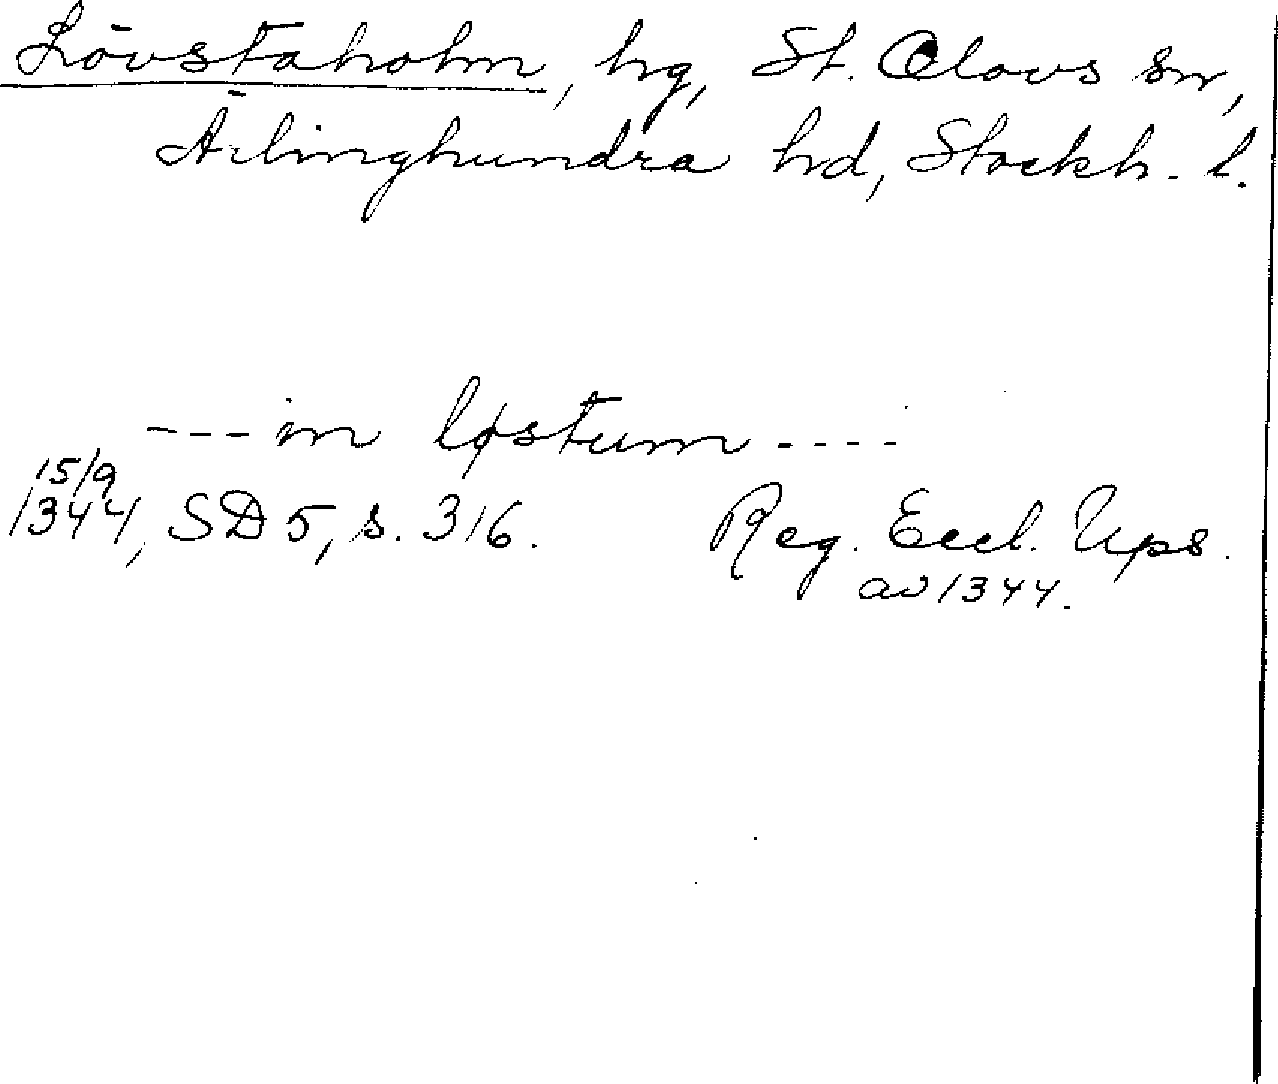 Lövstaholm, hg, St. Olovs sn,
Ärlinghundra hd, Stockh. l.
---in løstum----
15/9
1344, SD 5, s. 316. Reg. Eccl. Ups.
av 1344.